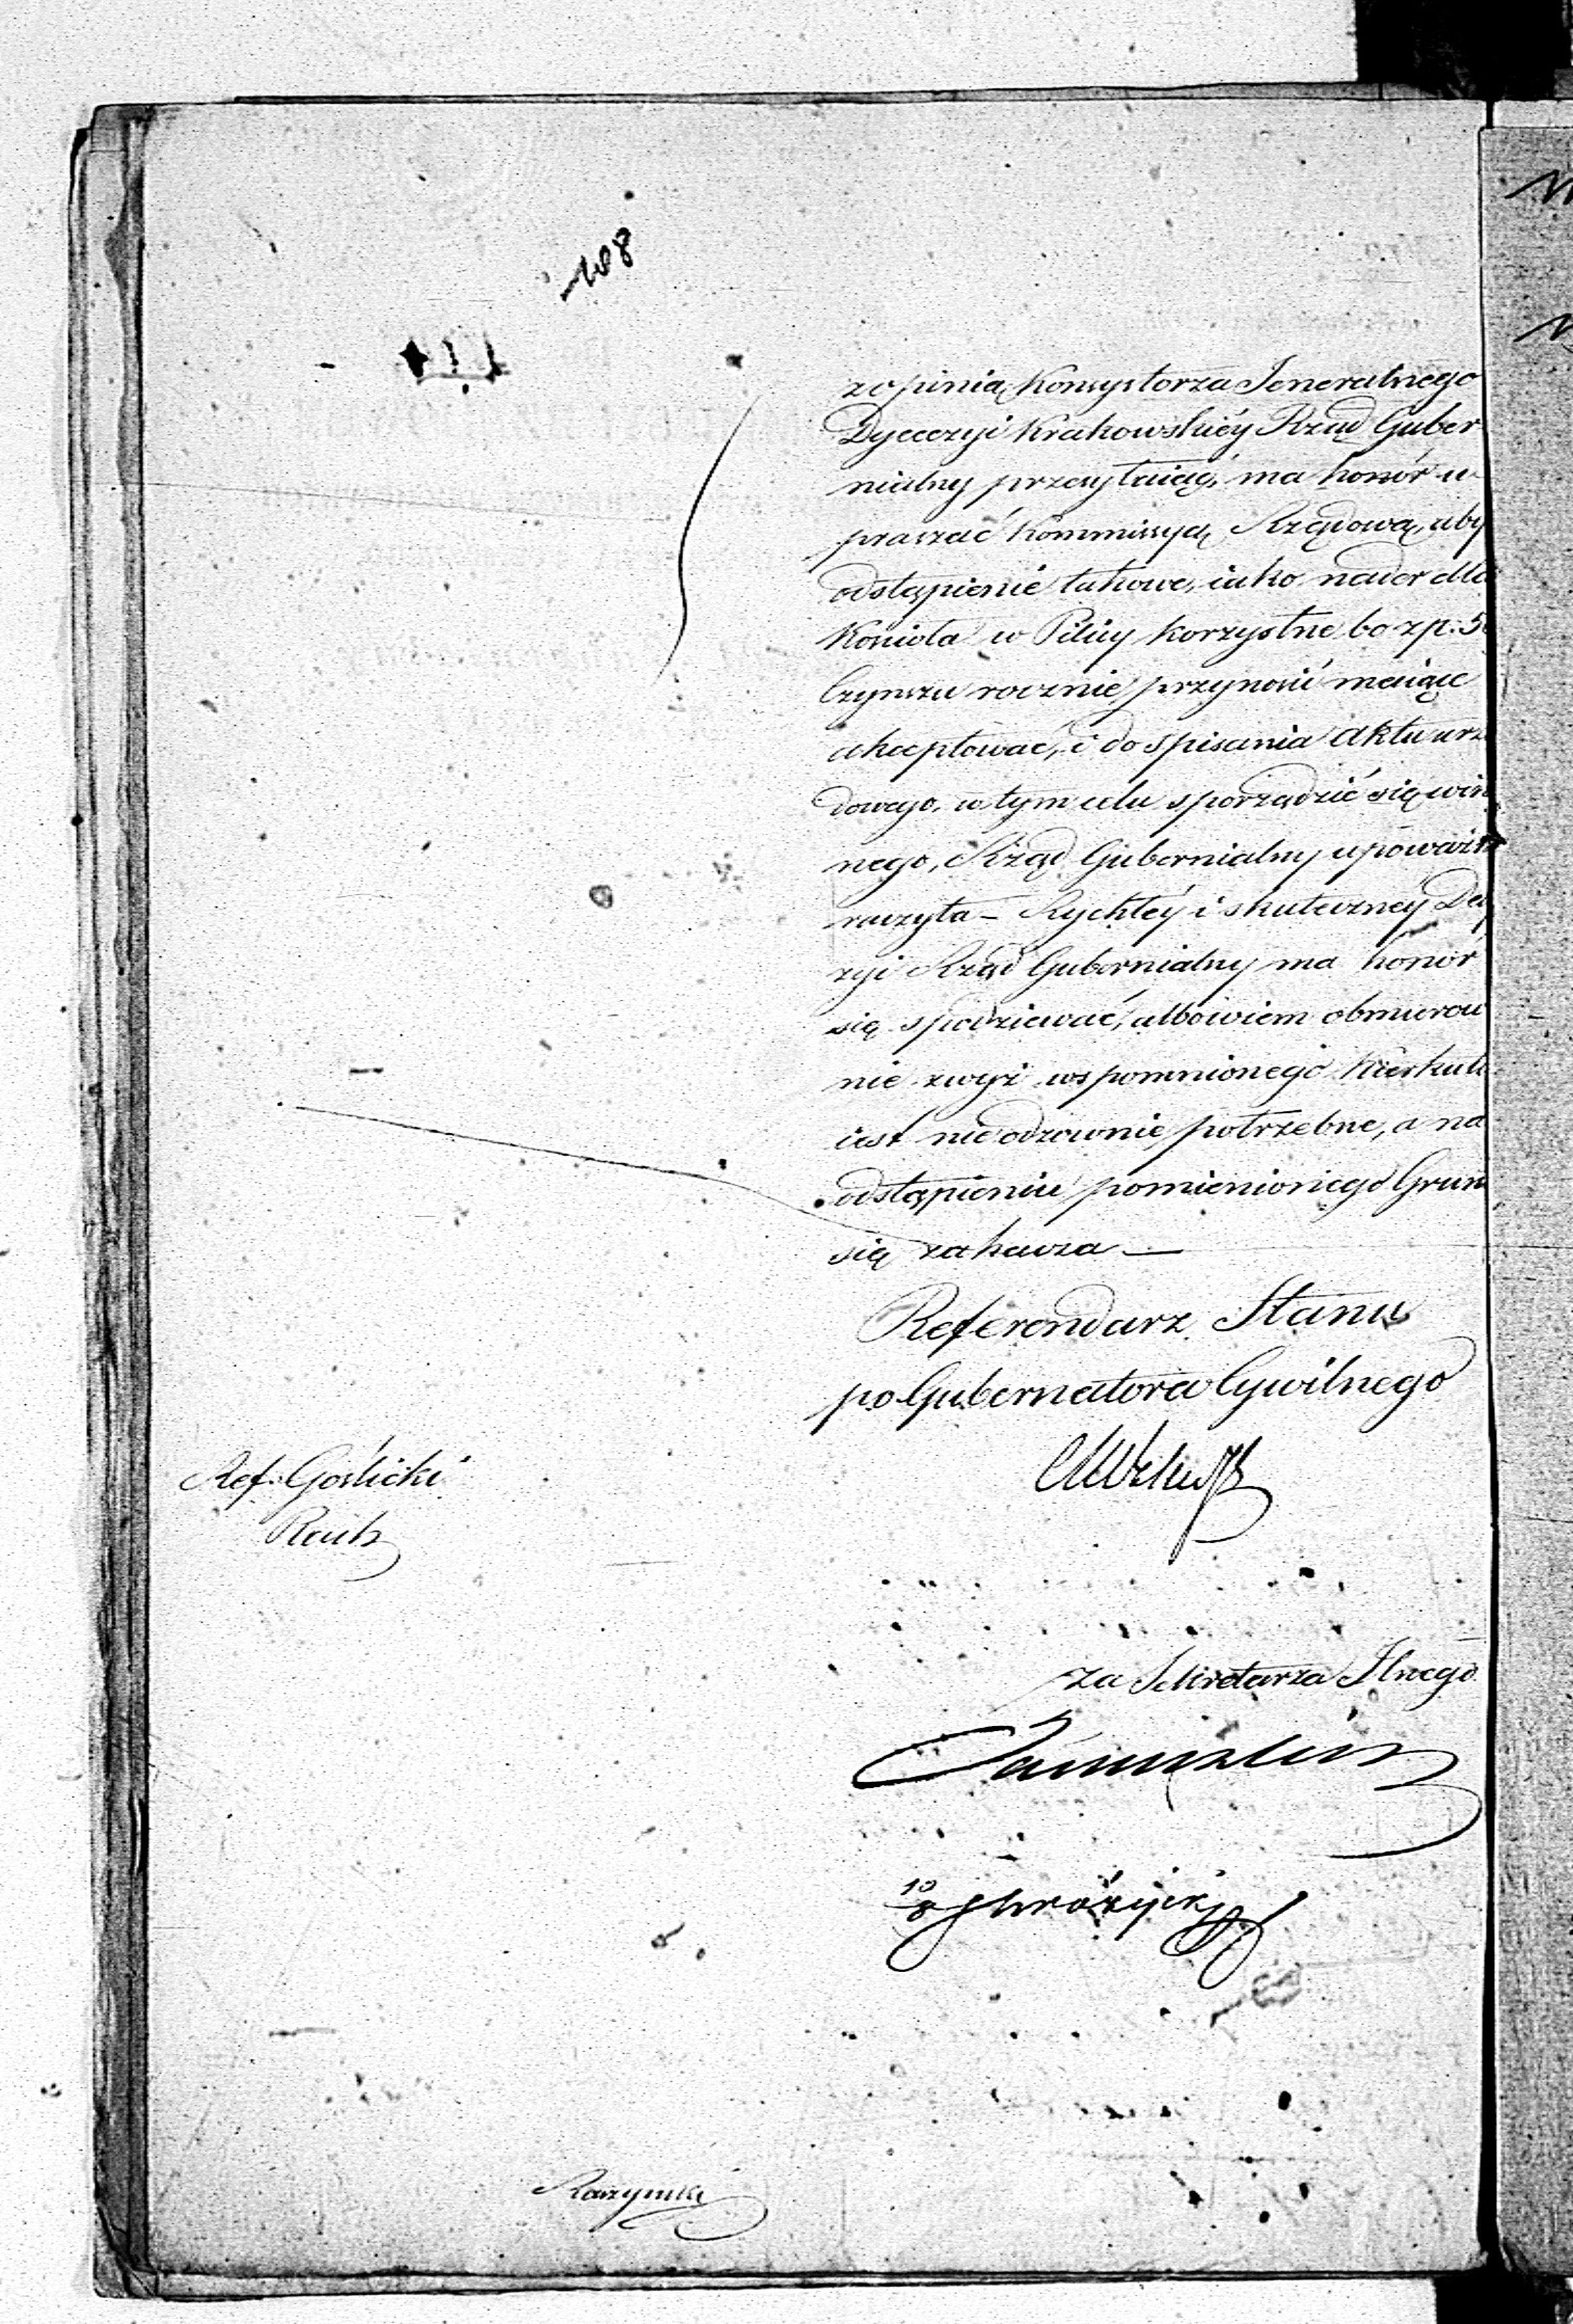 z opinią Konsystorza Jeneralnego
Dyecezyi Krakowskiéy Rząd Guber
nialny przesyłaiąc, ma honór u
praszać Kommissyą Rządową, aby
odstąpienie takowe, iako nader dla
Kościoła w Pilicy korzystne, bo zp: 5
Czynszu rocznie przynosić maiące
akceptować, i do spisania Aktu urz
dowego, w tym celu sporządzić się win
nego, Rząd Gubernialny upoważn
raczyła – Rychłéy i skuteczney De
zyi Rząd Gubernialny ma honór
się spodziewać, albowiem obmurow
nie zwyż wspomnionego Kierkut
iest nieodzownie potrzebne, a na
odstąpieniu pomienionego Grun
się zakawza —
Referendarz Stanu
po Gubernatora Cywilnego
Ref: Gorlicki
za Sekretarza Jlnego
Raczyński